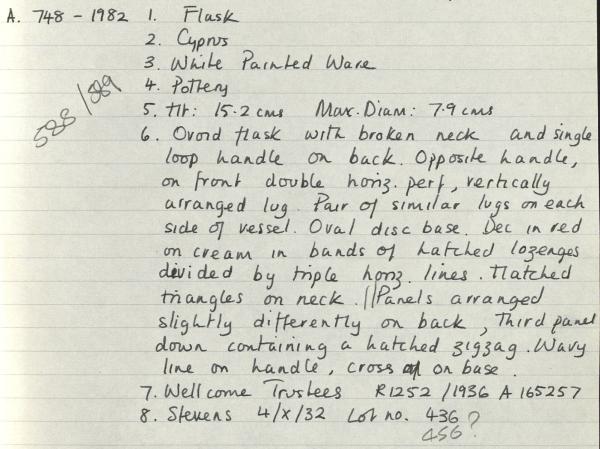 A. 748 - 1982 1. Flask
2. Cyprus
3. White Painted Ware
4. Pottery
588/889
5. Ht: 15.2 cms Max. Diam: 7.9 cms
6. Ovoid flask with broken neck and single
loop handle on back. Opposite handle,
on front double horiz. perf, vertically
arranged lug. Pair of similar lugs on each
side of vessel. Oval disc base. Dec in red
on cream in bands of hatched lozenges
divided by triple horiz. lines. Hatched
triangles on neck. || Panels arranged
slightly differently on back, Third panel
down containing a hatched zigzag. Wavy
line on handle, cross on base.
7. Wellcome Trustees R1252 /1936 A 165257
8. Stevens 4/X/32 Lot no. 436 ?
456